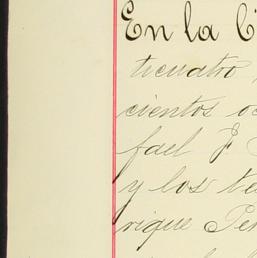 En la C
ticuatro
cientos oc
fael J
y los te
rique Per